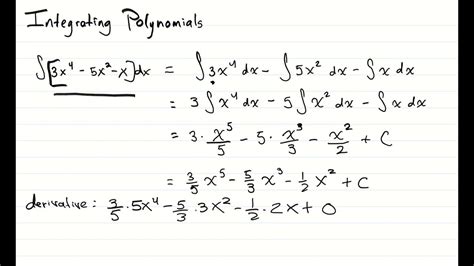 Integrating Polynomials
∫[3x⁴ - 5x² - x]dx = ∫3x⁴ dx - ∫5x² dx - ∫x dx
= 3∫x⁴ dx - 5∫x² dx - ∫x dx
= 3 · x⁵/5 - 5 · x³/3 - x²/2 + C
= 3/5 x⁵ - 5/3 x³ - 1/2 x² + C
derivative: 3/5 · 5x⁴ - 5/3 · 3x² - 1/2 · 2x + 0